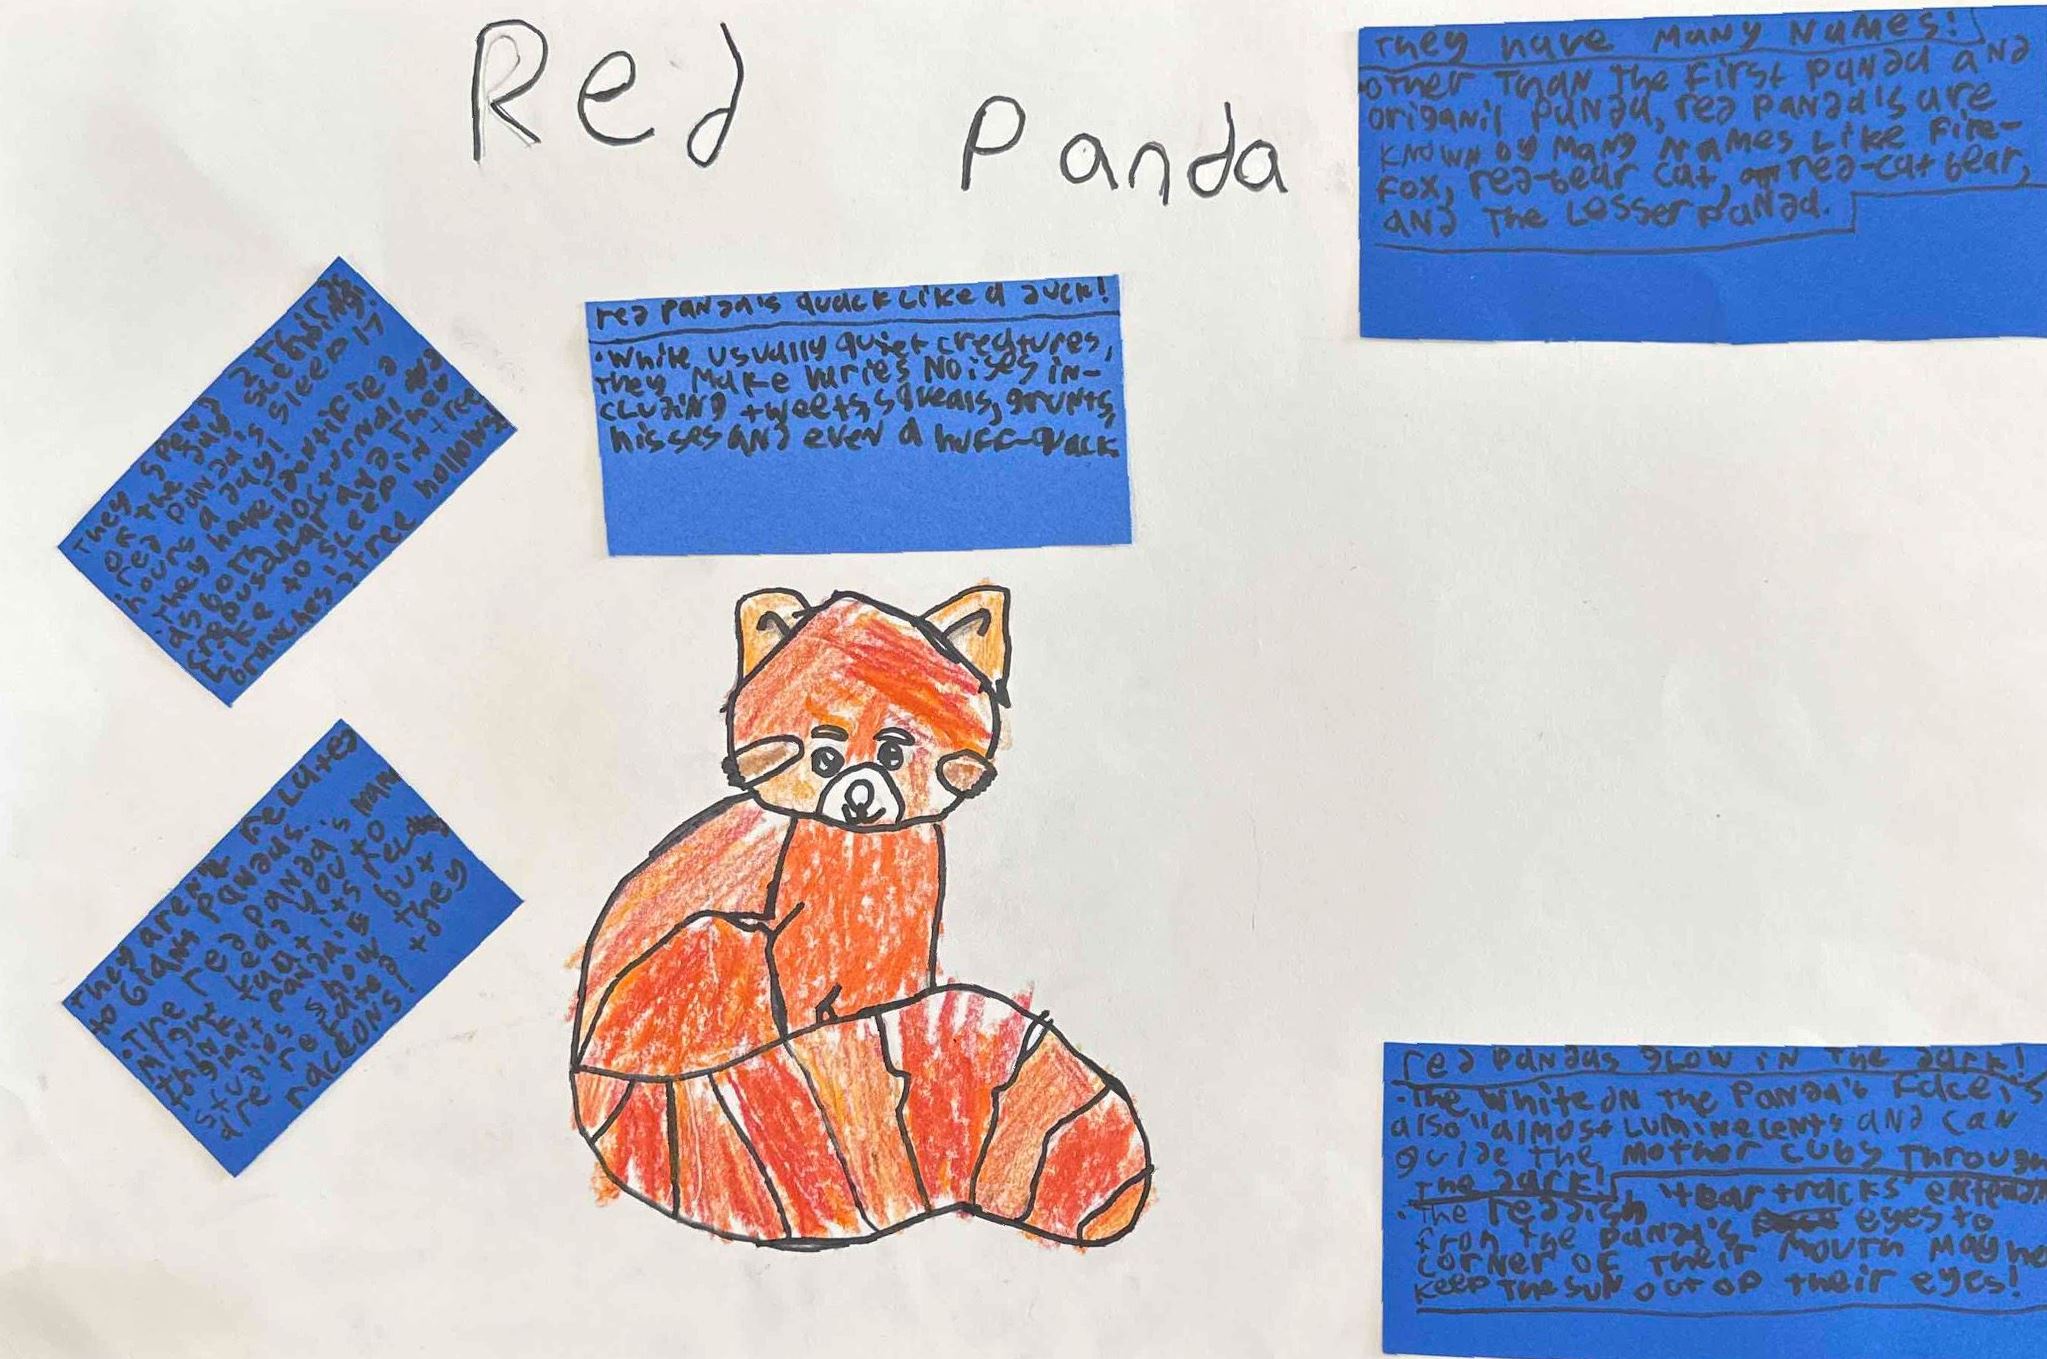 Red Panda
They have many names!
other than the first panda and
origanil panda, red panda's are
known by many names like fire-
fox, red-bear cat, red-cat bear,
and the Lesser panda.
They spend 2 thirds
of the day sleeping.
red panda's sleep 17
hours a day!
They have identified
as both nocturnal and
crepuscular and they
like to sleep in tree
branches tree hollows!
red panda's quack like a duck!
·While usually quiet creatures,
they make varies noises in-
cluding tweets, squeals, grunts,
hisses and even a huff-quack
They aren't related
to Giant pandas.
·The red panda's name
might lead you to
think that its related
to giant panda's but
studies show they
are related to
raccons!
red pandas glow in the dark!
·The white on the panda's face is
also "almost luminecent" and can
guide the mother cubs through
the dark!
·The reddish "tear tracks extending
from the panda's eyes to
corner of their mouth may help
keep the sun out of their eyes!